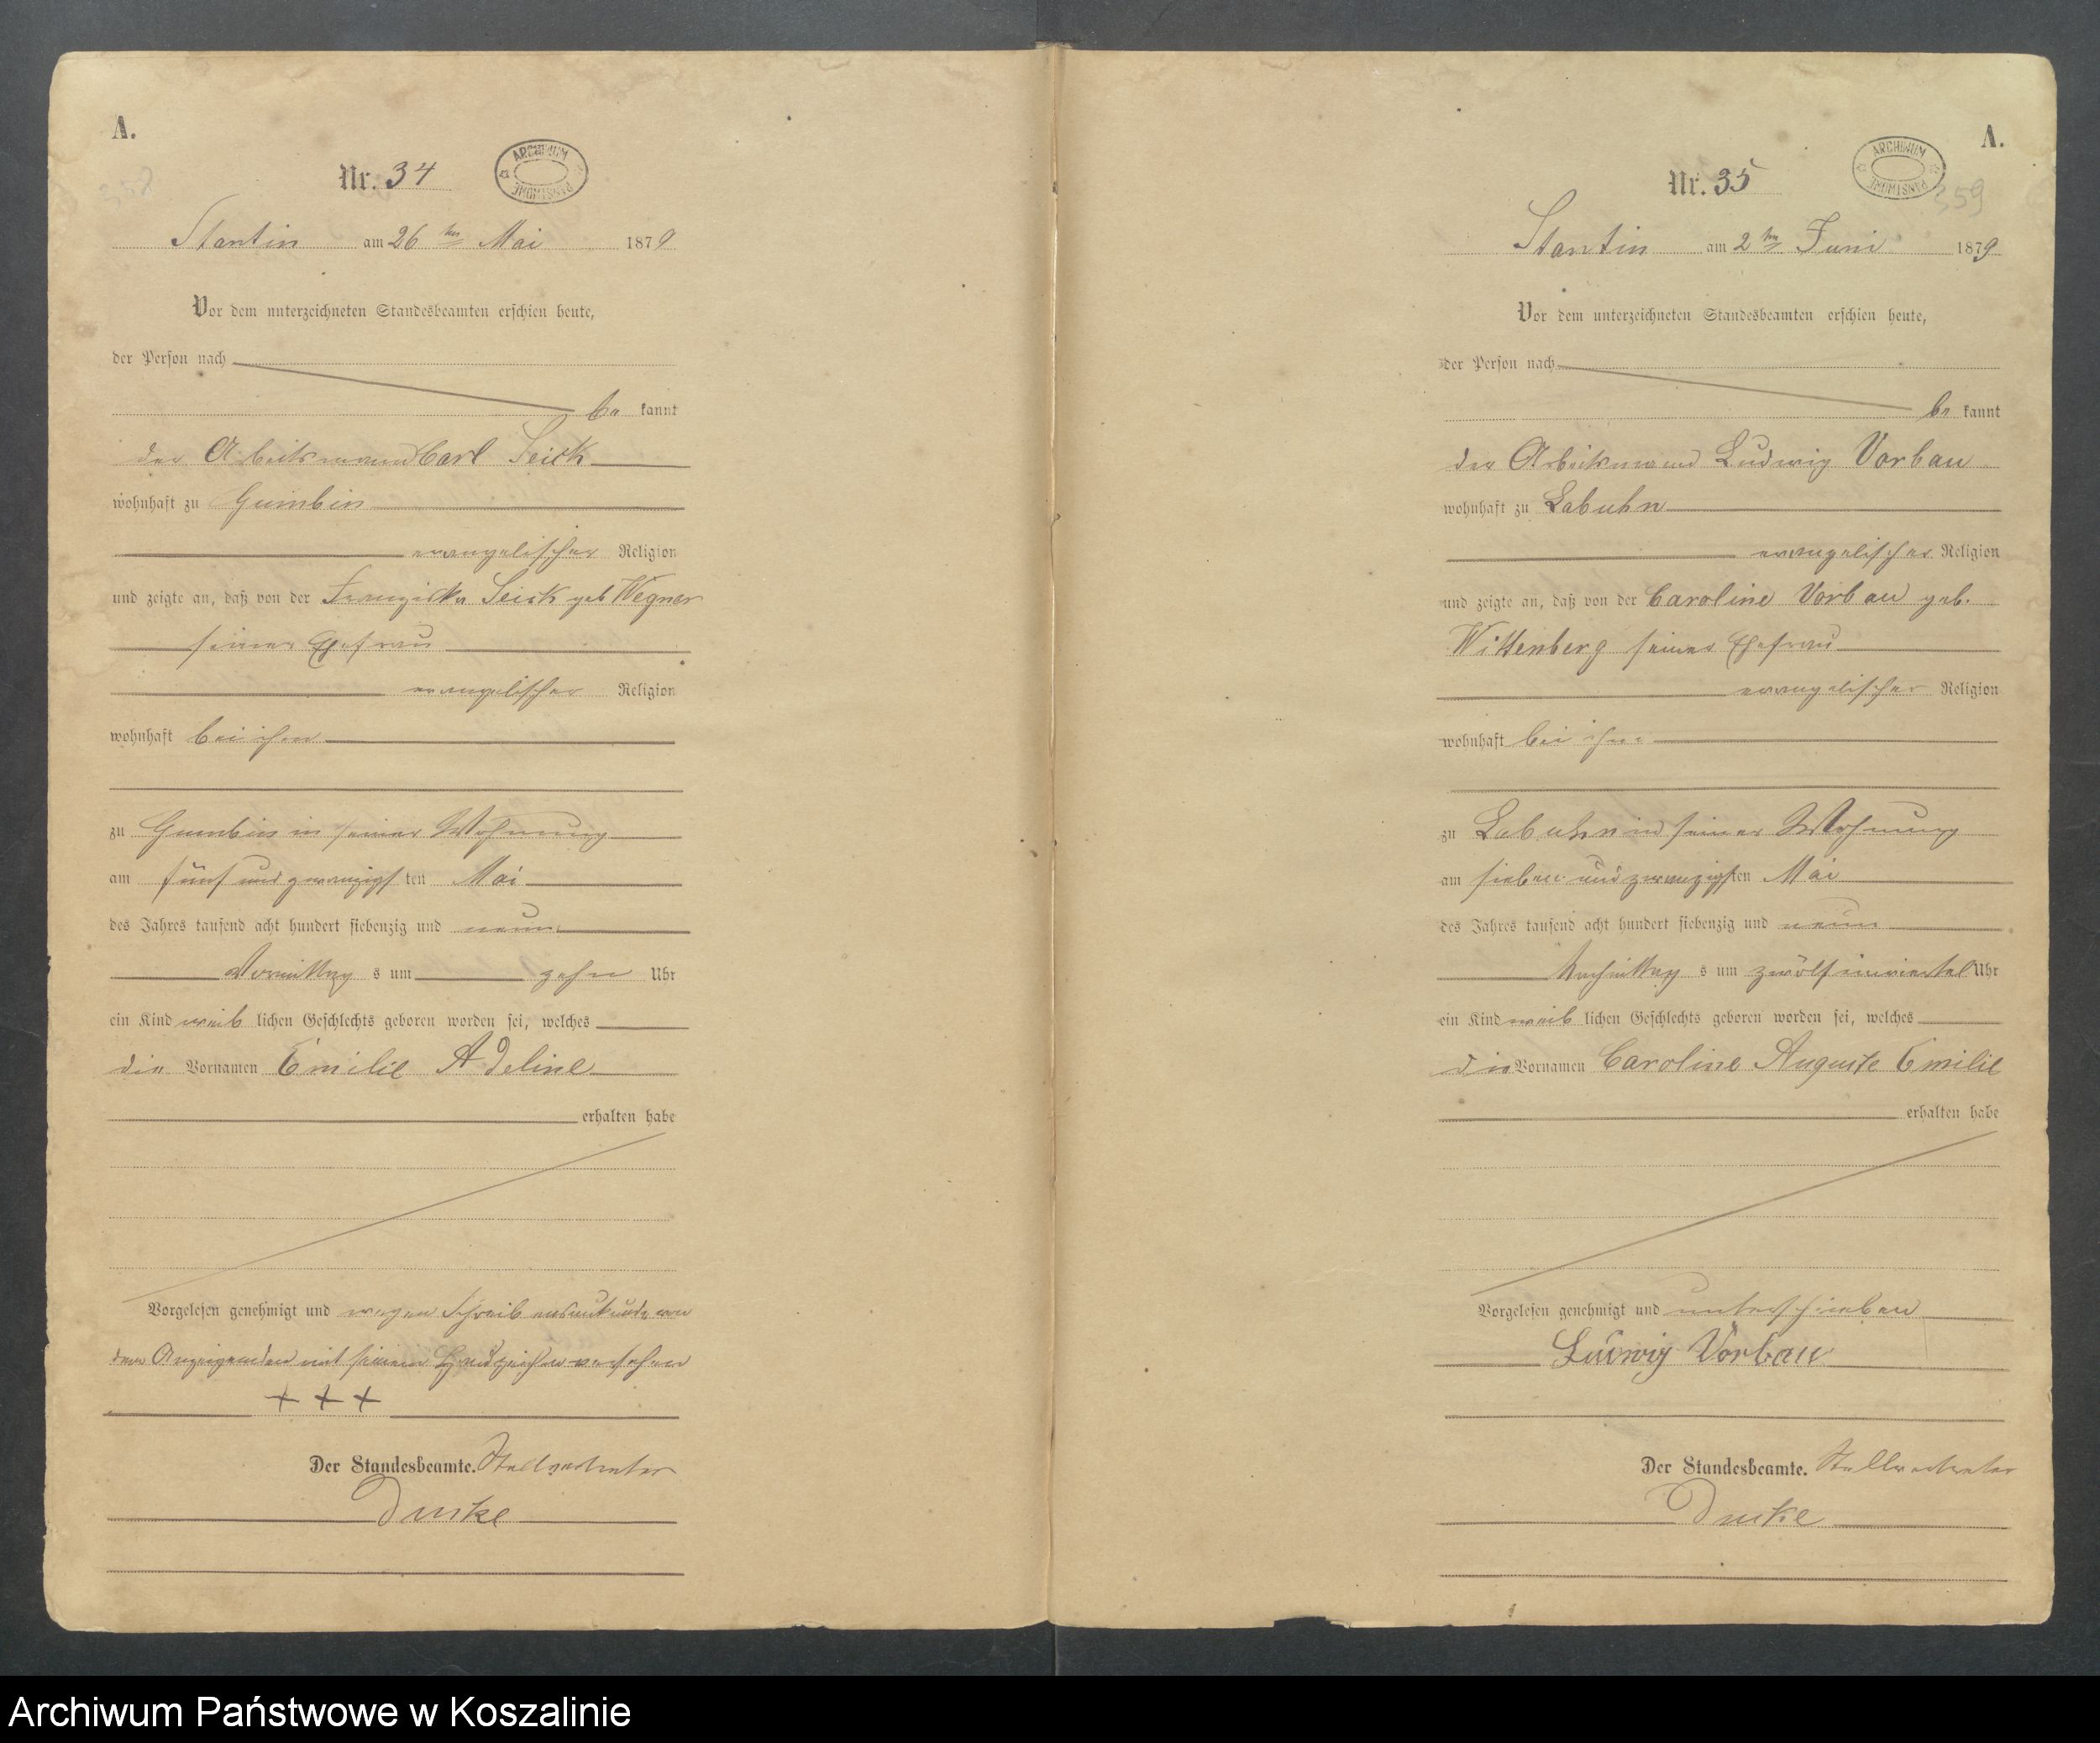 A.
358
Nr. 34
ARCHIWUM PAŃSTWOWE
Stantin am 26 ten Mai 1879
Vor dem unterzeichneten Standesbeamten erschien heute,
der Person nach
be kannt
der Arbeitsmann Carl Seick
wohnhaft zu Gumbin
evangelischer Religion
und zeigte an, daß von der Franziska Seick geb Wegner
seiner Ehefrau
evangelischer Religion
wohnhaft bei ihm
zu Gumbin in seiner Wohnung
am fünf und zwanzigs ten Mai
des Jahres tausend acht hundert siebenzig und neun
Vormittag s um zehn Uhr
ein Kind weib lichen Geschlechts geboren worden sei, welches
die Vornamen Emilie Adeline
erhalten habe
Vorgelesen genehmigt und wegen Schreibensunkunde von
dem Anzeigenden mit seinem Handzeichen versehen
+ + +
Der Standesbeamte. Stellvertreter
A.
Nr. 35
ARCHIWUM PAŃSTWOWE
359
Stantin am 2 ten Juni 1879
Vor dem unterzeichneten Standesbeamten erschien heute,
der Person nach
be kannt
der Arbeitsmann Ludwig Vorbau
wohnhaft zu Labuhn
evangelischer Religion
und zeigte an, daß von der Caroline Vorbau geb.
Wittenberg seiner Ehefrau
evangelischer Religion
wohnhaft bei ihm
zu Labuhn in seiner Wohnung
am sieben und zwanzigsten Mai
des Jahres tausend acht hundert siebenzig und neun
Nachmittag s um zwölf einviertel Uhr
ein Kind weib lichen Geschlechts geboren worden sei, welches
die Vornamen Caroline Auguste Emilie
erhalten habe
Vorgelesen genehmigt und unterschrieben
Ludwig Vorbau
Der Standesbeamte. Stellvertreter
Archiwum Państwowe w Koszalinie